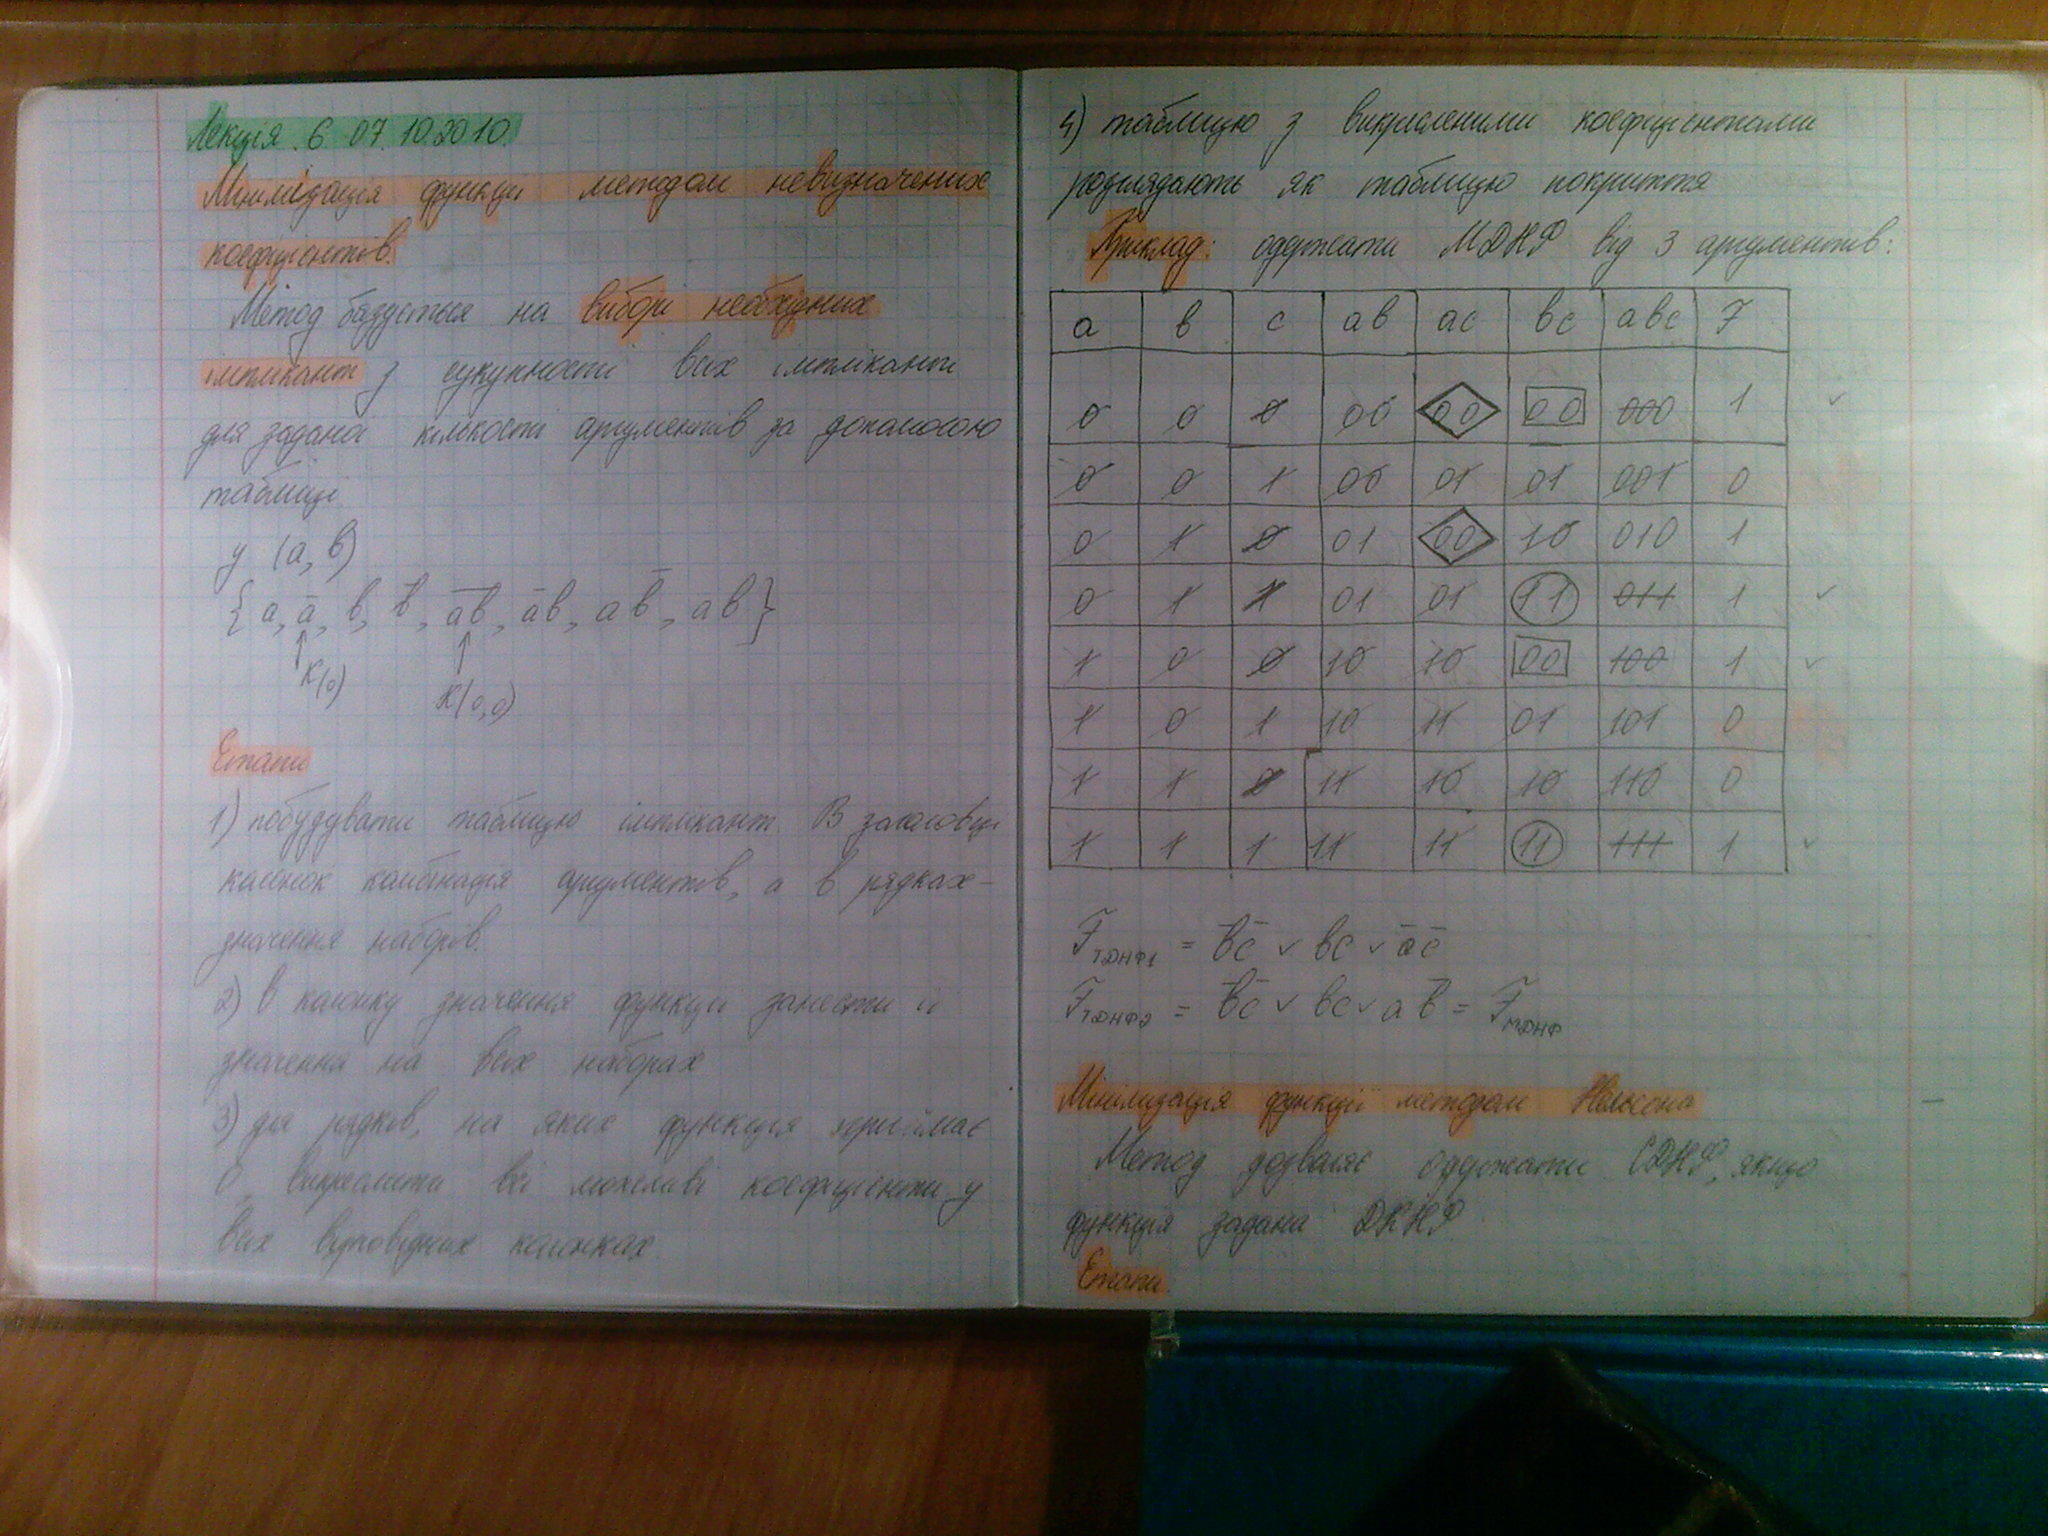 Лекція 6 07.10.2010.
Мінімізація функції методом невизначених
коефіцієнтів.
Метод базується на виборі необхідних
імплікант з сукупності всіх імплікант
для заданої кількості аргументів за допомогою
таблиці
y (a, b)
{a, ā, b, b̄, a̅b̅, āb, ab̄, ab}
K(0)
K(0,0)
Етапи
1) побудувати таблицю імплікант. В заголовці
колонок комбінація аргументів, а в рядках -
значення наборів.
2) в колонку значення функції занести її
значення на всіх наборах
3) для рядків, на яких функція приймає
0, викреслити всі можливі коефіцієнти у
всіх відповідних колонках.
4) таблицю з викресленими коефіцієнтами
розглядають як таблицю покриття
Приклад: одержати МДНФ від 3 аргументів:
a b c ab ac bc abc F
0 0 0 00 00 00 000 1 ✓
0 0 1 00 01 01 001 0
0 1 0 01 00 10 010 1
0 1 1 01 01 11 011 1 ✓
1 0 0 10 10 00 100 1 ✓
1 0 1 10 11 01 101 0
1 1 0 11 10 10 110 0
1 1 1 11 11 11 111 1 ✓
F ТДНФ1 = b̄c̄ ∨ bc ∨ āc̄
F ТДНФ2 = b̄c̄ ∨ bc ∨ ab̄ = F МДНФ
Мінімізація функції методом Нельсона
Метод дозволяє одержати СДНФ, якщо
функція задана ДКНФ
Етапи.